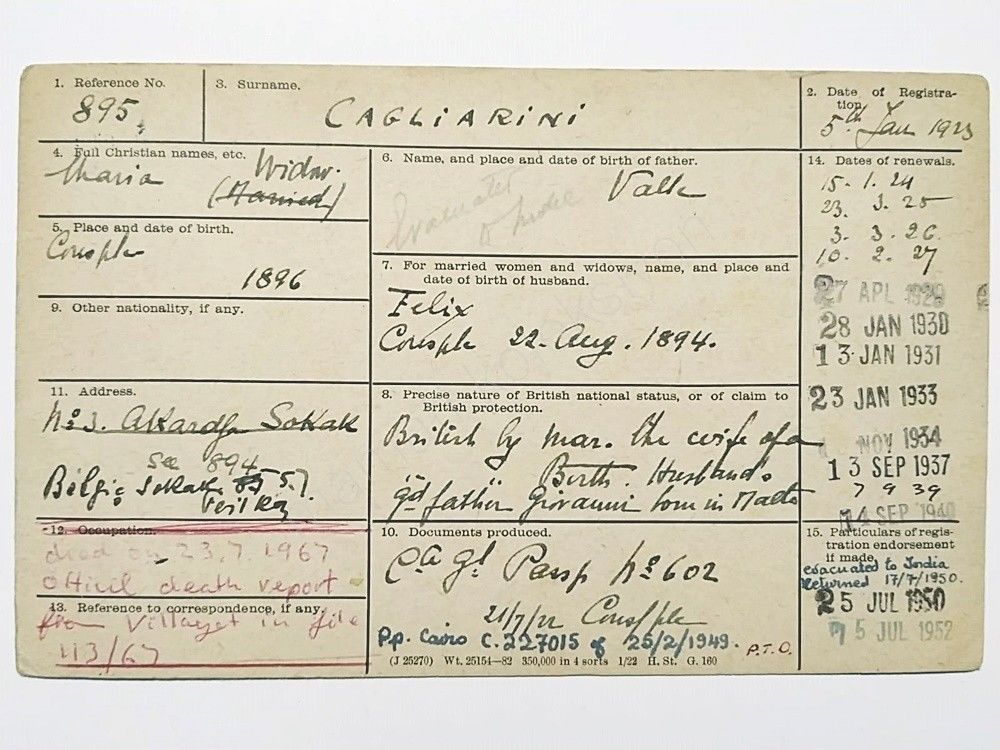 1. Reference No.
895
3. Surname.
CAGLIARINI
2. Date of Registra-
tion
5th Jan 1923
4. Full Christian names, etc.
Maria
Widow.
(Married)
6. Name, and place and date of birth of father.
Valle
Evacuated
to India
14. Dates of renewals.
15. 1. 24
23. 3. 25
3. 3. 26
10. 2. 27
27 APL 1929
28 JAN 1930
13 JAN 1931
23 JAN 1933
NOV 1934
13 SEP 1937
7 9 39
14 SEP 1940
5. Place and date of birth.
Consple
1896
7. For married women and widows, name, and place and
date of birth of husband.
Felix
Consple 22. Aug. 1894.
9. Other nationality, if any.
11. Address.
No 3. Akardja Sokak
See 894
Bilgiç Sokak 5.7.
8. Precise nature of British national status, or of claim to
British protection.
British by mar. the wife of a
Birth. Husband's
gd father Giovanni born in Malta
12. Occupation.
died on 23.7 1967
Official death report
13. Reference to correspondence, if any.
from Villayet in file
113/67
10. Documents produced.
Ca Gl Passp No 602
21/7/22 Consple
P.p. Cairo C.227015 of 25/2/1949.
P.T.O.
15. Particulars of regis-
tration endorsement
if made.
evacuated to India
Returned 17/7/1950.
25 JUL 1950
5 JUL 1952
(J 25270) Wt. 25154—82 350,000 in 4 sorts 1/22 H. St. G. 160